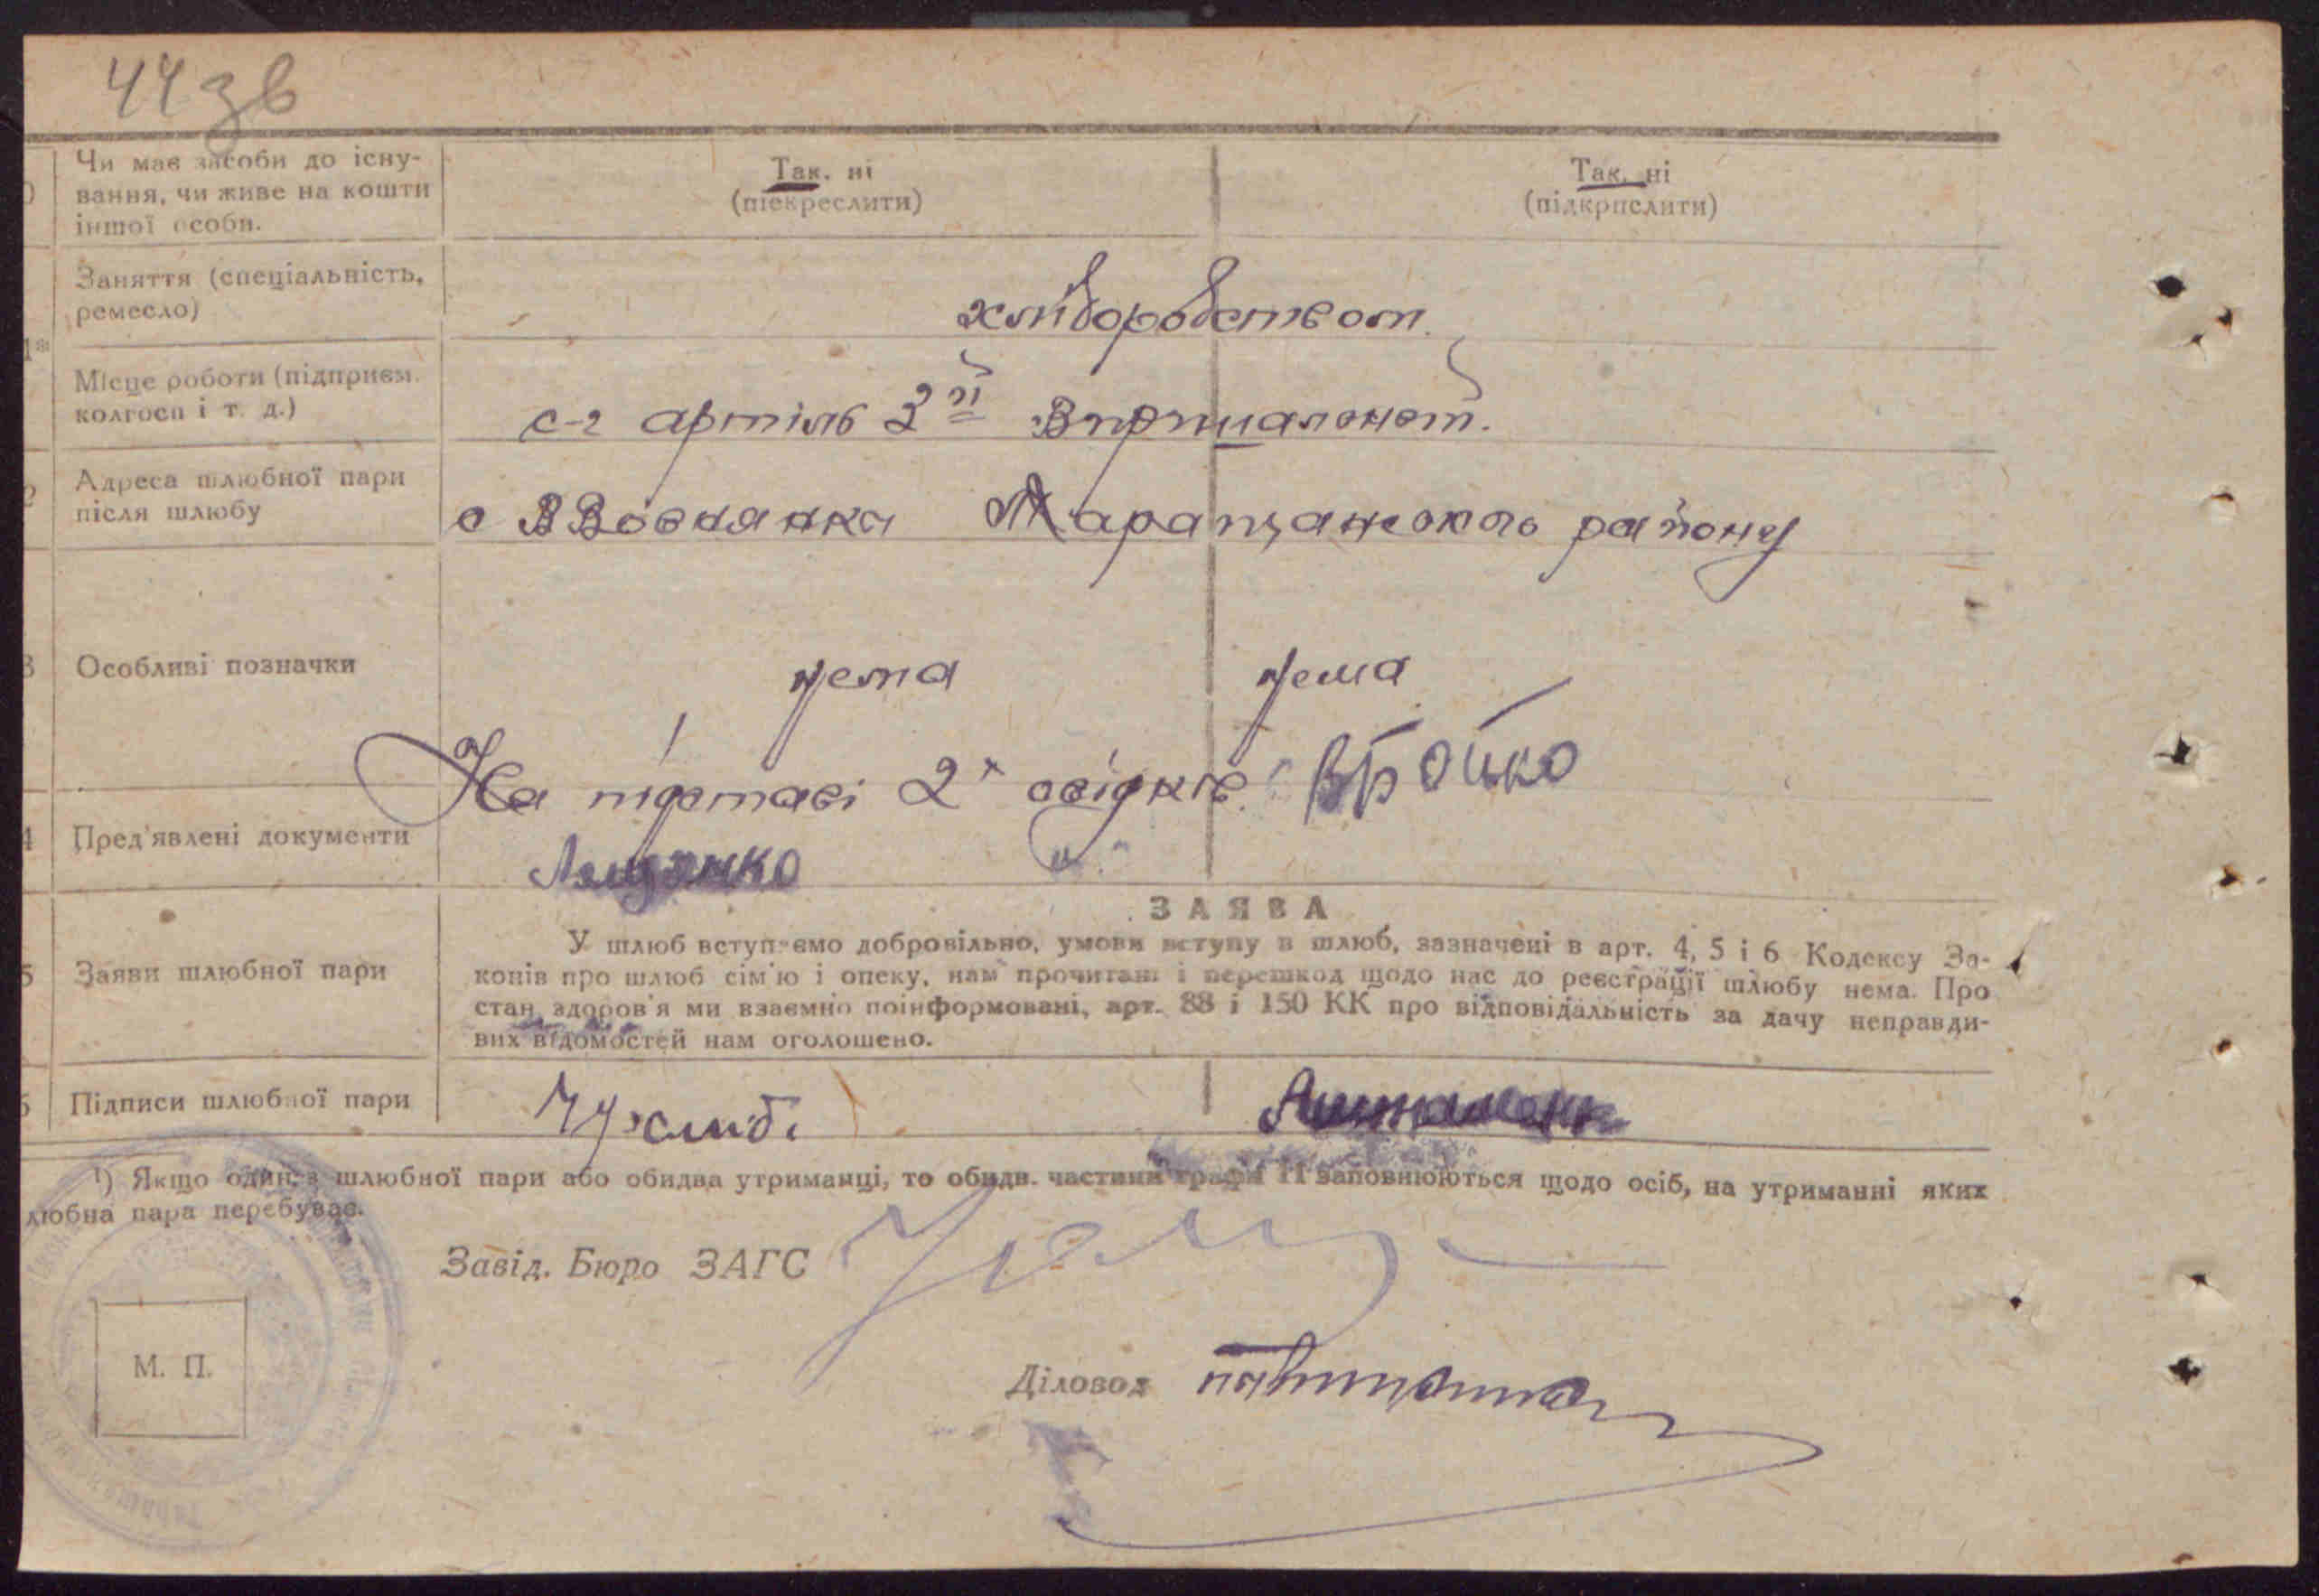 44 зв
Чи має засоби до існу-
вання, чи живе на кошти
іншої особи.
Так. ні
(піекреслити)
Так. ні
(підкрислити)
Заняття (спеціальність,
ремесло)
хліборобством.
Місце роботи (підприєм.
колгосп і т. д.)
с-г артіль 3й Вирішальний.
Адреса шлюбної пари
після шлюбу
с ВВовнянка Таращанського району
Особливі позначки
нема нема
Пред'явлені документи
На підставі 2х свідків: ВБойко
Заяви шлюбної пари
ЗАЯВА
У шлюб вступаємо добровільно, умови вступу в шлюб, зазначені в арт. 4, 5 і 6 Кодексу За-
конів про шлюб сім'ю і опеку, нам прочитані і перешкод щодо нас до реєстрації шлюбу нема. Про
стан здоров'я ми взаємно поінформовані, арт. 88 і 150 КК про відповідальність за дачу неправди-
вих відомостей нам оголошено.
Підписи шлюбної пари
¹) Якщо один з шлюбної пари або обидва утриманці, то обидв. частини графи 11 заповнюються щодо осіб, на утриманні яких
любна пара перебуває.
Завід. Бюро ЗАГС
М. П.
Діловод